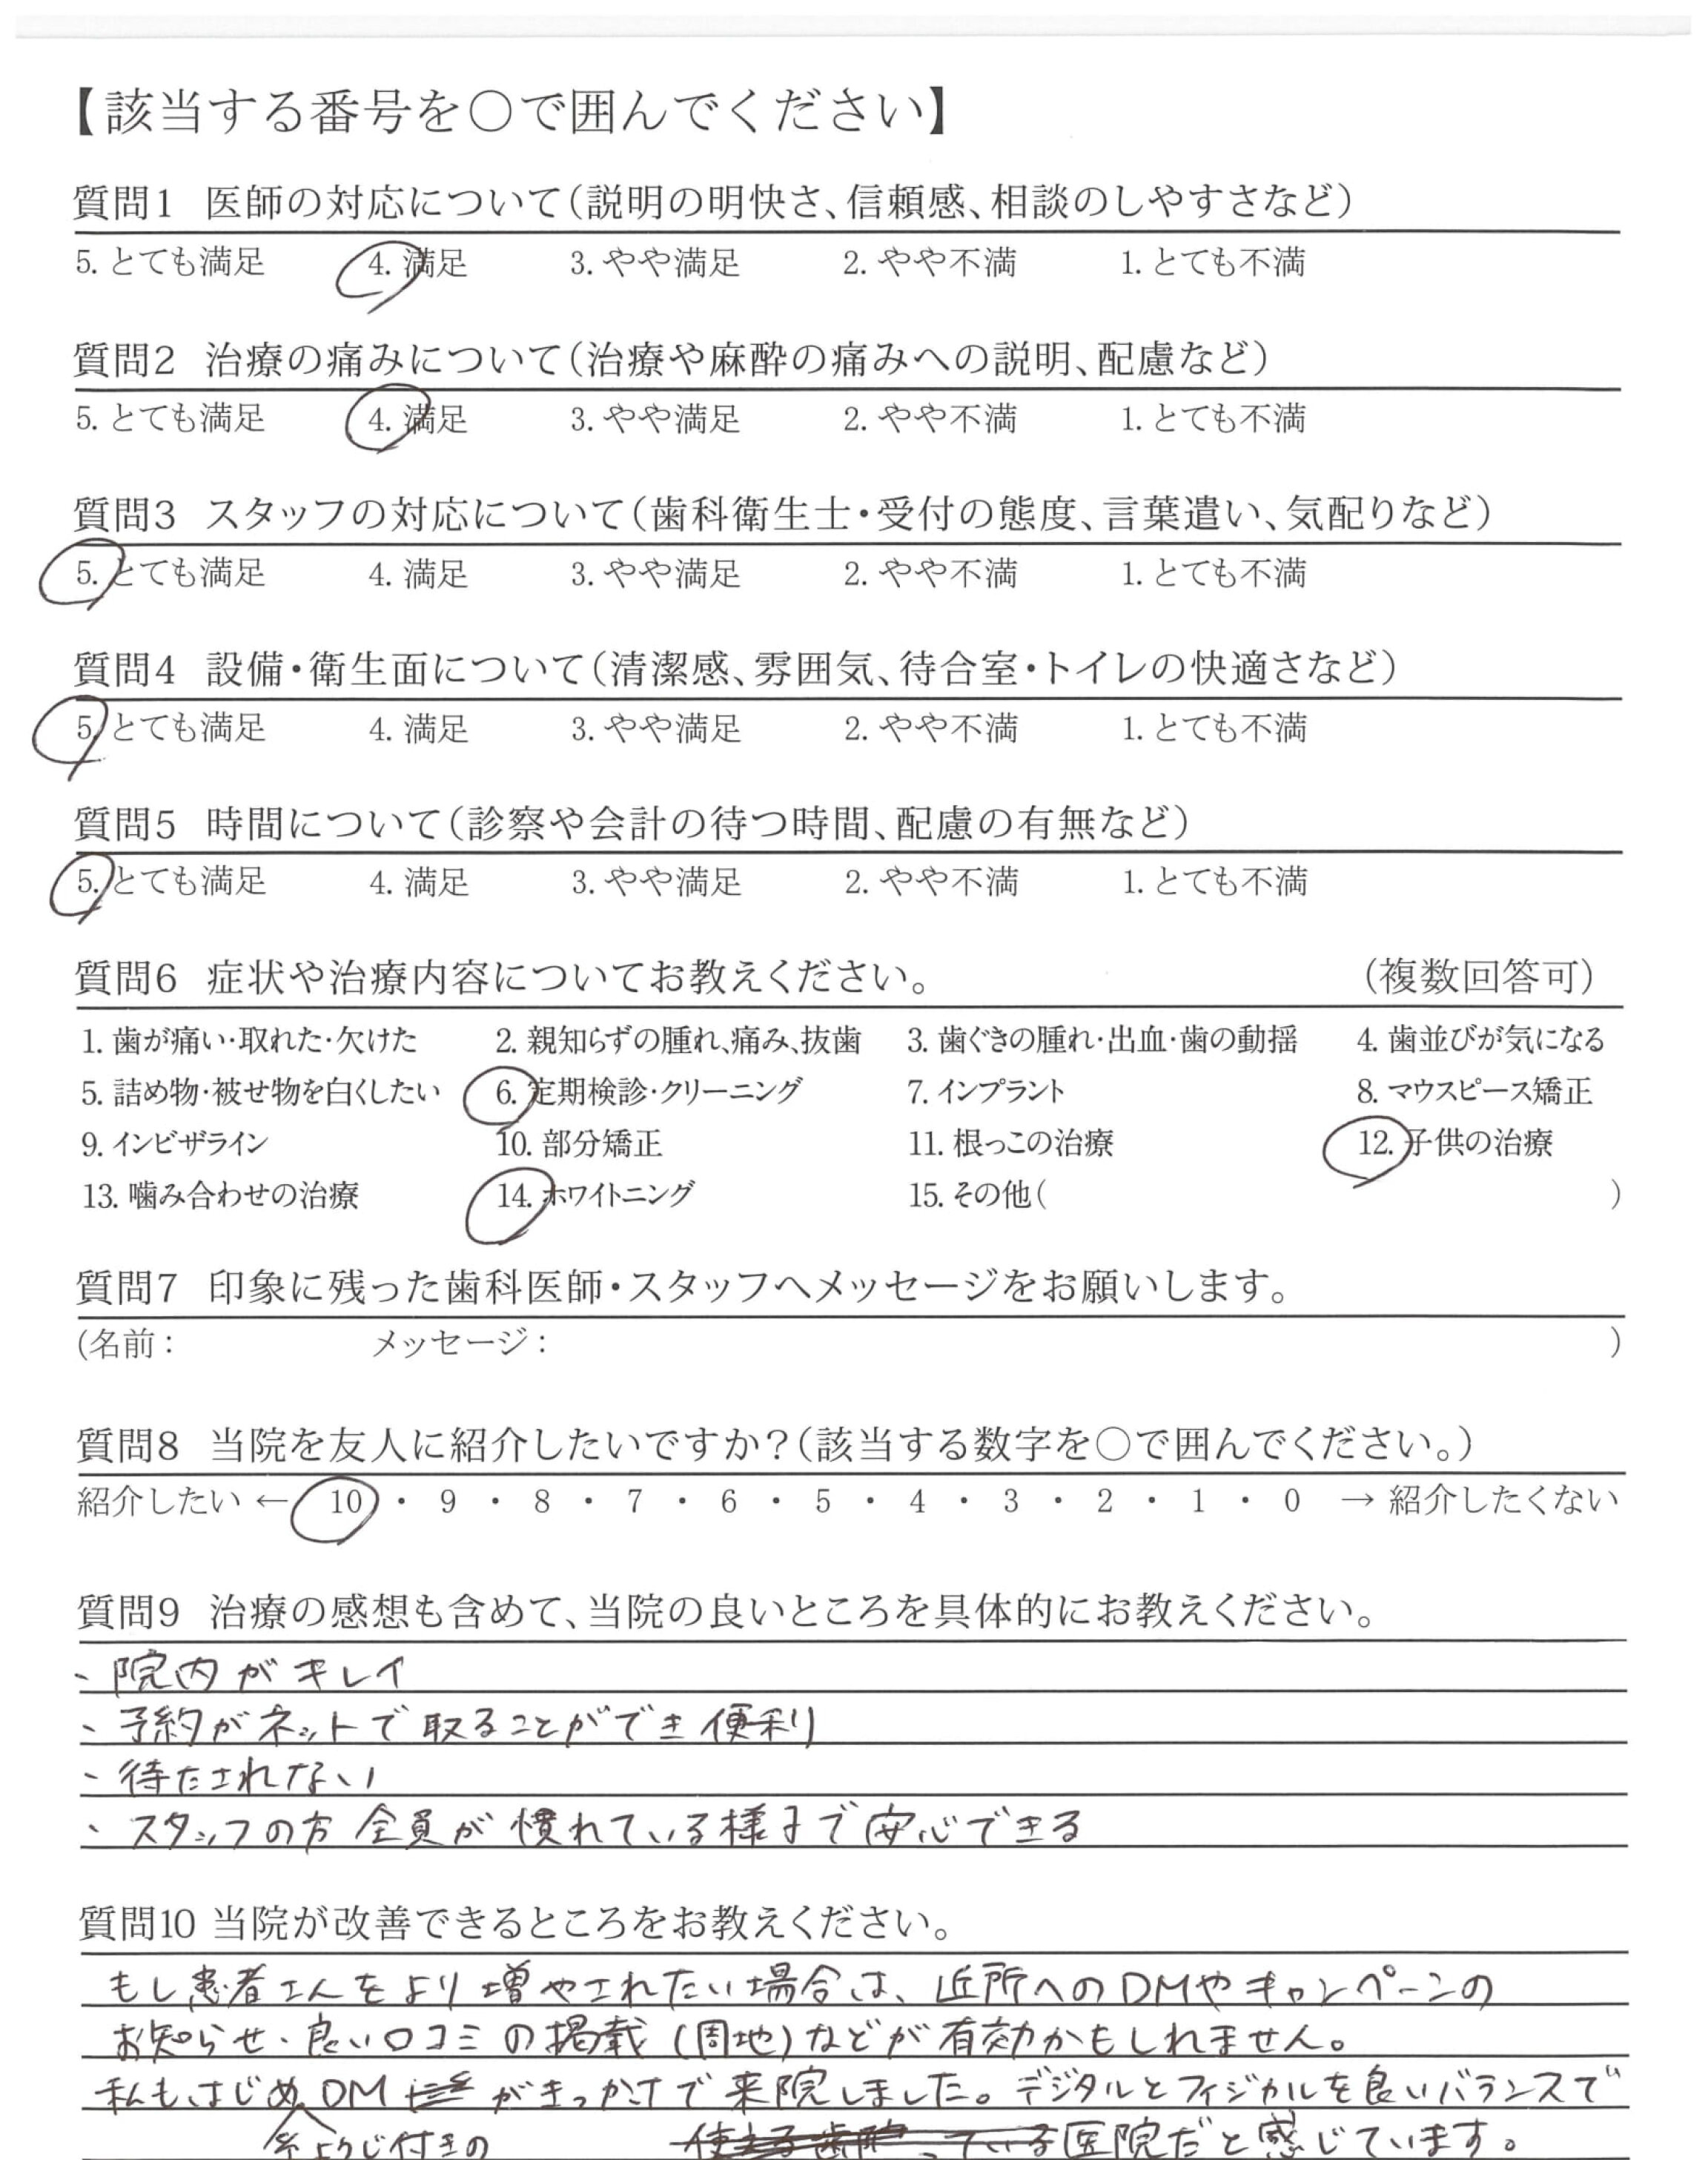 【該当する番号を○で囲んでください】
質問1 医師の対応について(説明の明快さ、信頼感、相談のしやすさなど)
5. とても満足 4. 満足 3. やや満足 2. やや不満 1. とても不満
質問2 治療の痛みについて(治療や麻酔の痛みへの説明、配慮など)
5. とても満足 4. 満足 3. やや満足 2. やや不満 1. とても不満
質問3 スタッフの対応について(歯科衛生士・受付の態度、言葉遣い、気配りなど)
5. とても満足 4. 満足 3. やや満足 2. やや不満 1. とても不満
質問4 設備・衛生面について(清潔感、雰囲気、待合室・トイレの快適さなど)
5. とても満足 4. 満足 3. やや満足 2. やや不満 1. とても不満
質問5 時間について(診察や会計の待つ時間、配慮の有無など)
5. とても満足 4. 満足 3. やや満足 2. やや不満 1. とても不満
質問6 症状や治療内容についてお教えください。 (複数回答可)
1. 歯が痛い・取れた・欠けた 2. 親知らずの腫れ、痛み、抜歯 3. 歯ぐきの腫れ・出血・歯の動揺 4. 歯並びが気になる
5. 詰め物・被せ物を白くしたい 6. 定期検診・クリーニング 7. インプラント 8. マウスピース矯正
9. インビザライン 10. 部分矯正 11. 根っこの治療 12. 子供の治療
13. 噛み合わせの治療 14. ホワイトニング 15. その他( )
質問7 印象に残った歯科医師・スタッフへメッセージをお願いします。
(名前: メッセージ: )
質問8 当院を友人に紹介したいですか?(該当する数字を○で囲んでください。)
紹介したい ← 10 ・ 9 ・ 8 ・ 7 ・ 6 ・ 5 ・ 4 ・ 3 ・ 2 ・ 1 ・ 0 → 紹介したくない
質問9 治療の感想も含めて、当院の良いところを具体的にお教えください。
、院内がキレイ
、予約がネットで取ることができ便利
、待たされない
、スタッフの方全員が慣れている様子で安心できる
質問10 当院が改善できるところをお教えください。
もし患者さんをより増やされたい場合は、近所へのDMやキャンペーンの
お知らせ・良い口コミの掲載(周地)などが有効かもしれません。
私もはじめDMがきっかけで来院しました。デジタルとフィジカルを良いバランスで
糸ようじ付きの ている医院だと感じています。